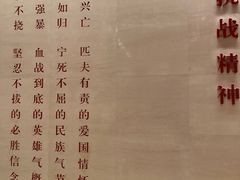 抗战精神
兴亡 匹夫有责的爱国情怀
如归 宁死不屈的民族气节
强暴 血战到底的英雄气概
不挠 坚忍不拔的必胜信念